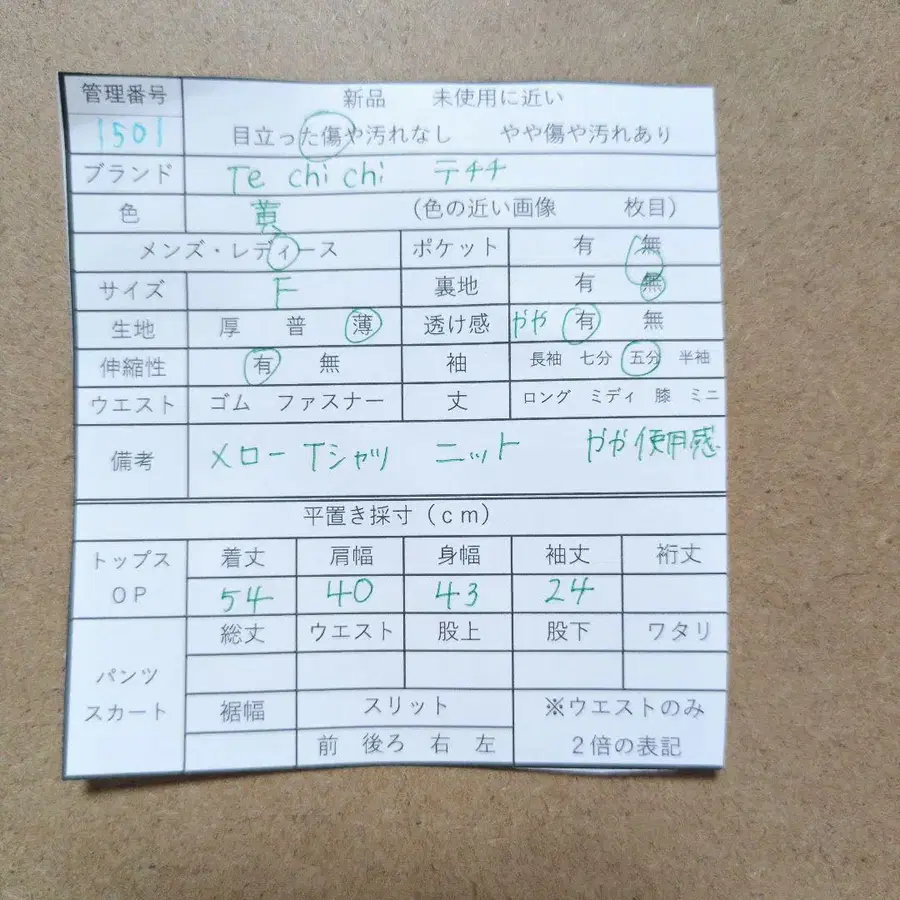 管理番号 新品 未使用に近い
1501 目立った傷や汚れなし やや傷や汚れあり
ブランド Te chi chi テチチ
色 黄 (色の近い画像 枚目)
メンズ・レディース ポケット 有 無
サイズ F 裏地 有 無
生地 厚 普 薄 透け感 やや 有 無
伸縮性 有 無 袖 長袖 七分 五分 半袖
ウエスト ゴム ファスナー 丈 ロング ミディ 膝 ミニ
備考 メローTシャツ ニット やや使用感
平置き採寸(cm)
トップス 着丈 肩幅 身幅 袖丈 裄丈
OP 54 40 43 24
総丈 ウエスト 股上 股下 ワタリ
パンツ
スカート 裾幅 スリット ※ウエストのみ
前 後ろ 右 左 2倍の表記